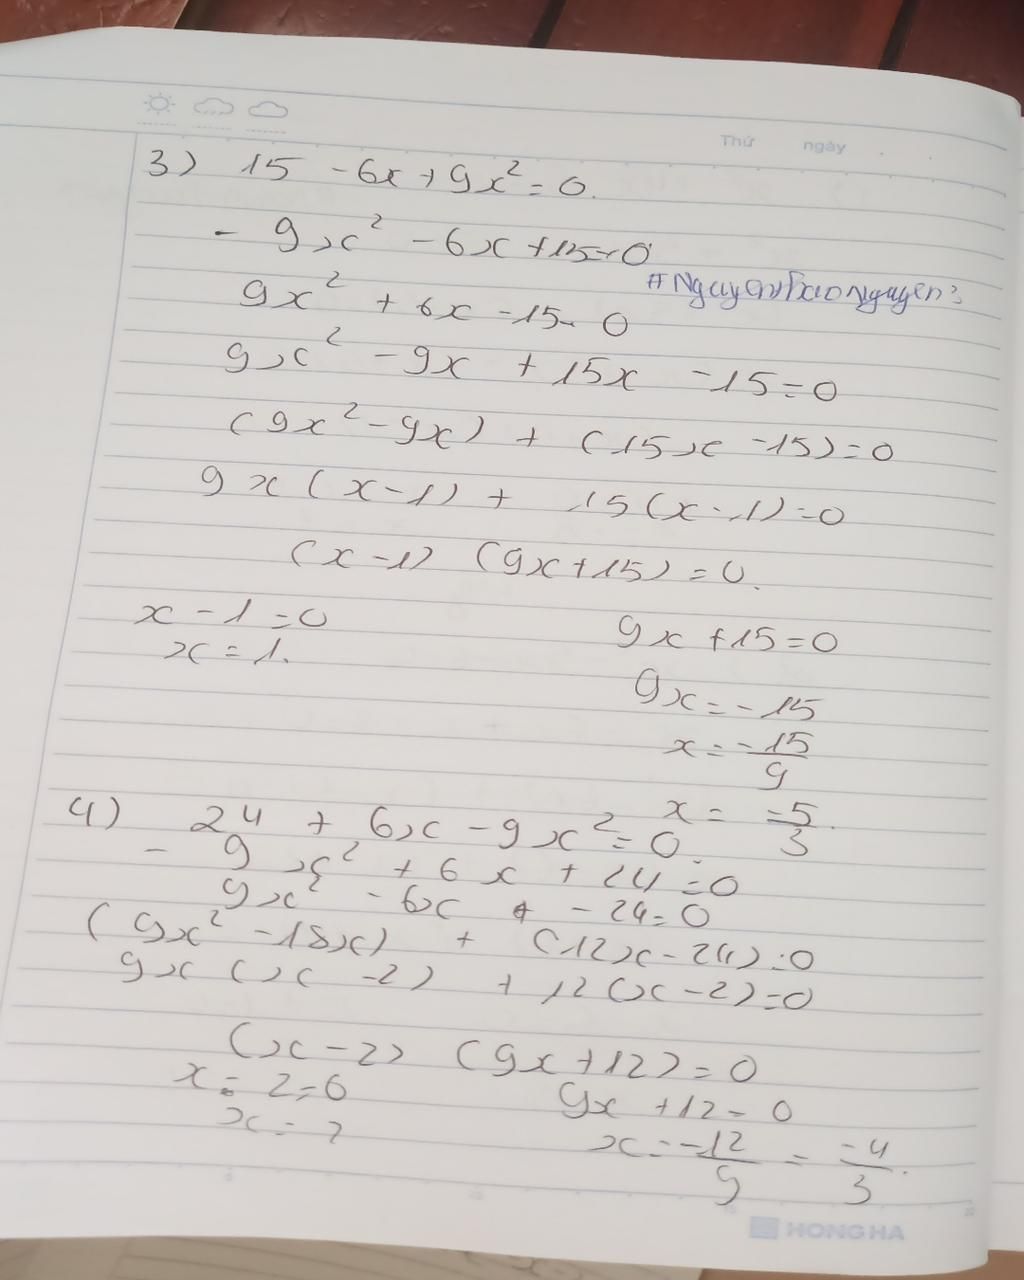 Thứ ngày
3) 15 - 6x + 9x² = 0.
- 9x² - 6x + 15 = 0
#Nguyenthaonguyen
9x² + 6x - 15 = 0
9x² - 9x + 15x - 15 = 0
(9x² - 9x) + (15x - 15) = 0
9x(x - 1) + 15(x - 1) = 0
(x - 1) (9x + 15) = 0.
x - 1 = 0 9x + 15 = 0
x = 1. 9x = -15
x = -15/9
x = -5/3.
4) 24 + 6x - 9x² = 0.
- 9x² + 6x + 24 = 0
9x² - 6x - 24 = 0
(9x² - 18x) + (12x - 24) = 0
9x(x - 2) + 12(x - 2) = 0
(x - 2) (9x + 12) = 0
x = 2 = 0 9x + 12 = 0
x = 2 x = -12/9 = -4/3.
HONG HA